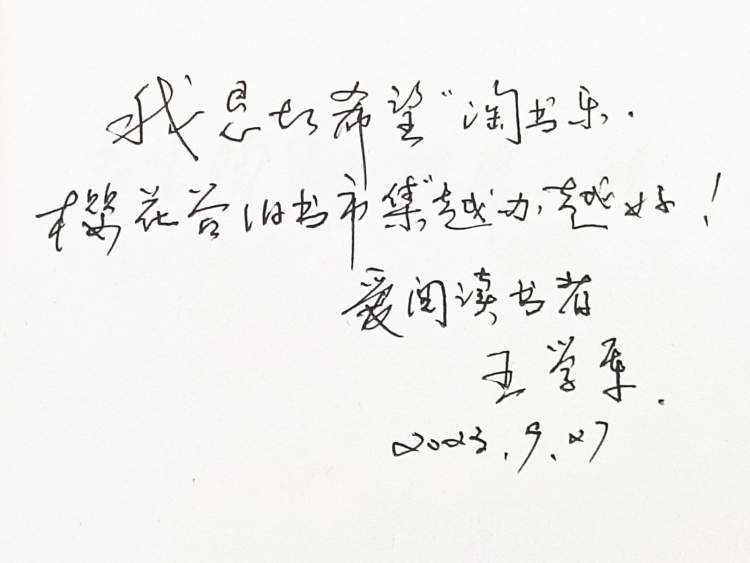 我恳切希望“淘书乐·
樱花谷旧书市集”越办越好！
爱阅读书者
王学军.
2023.9.27